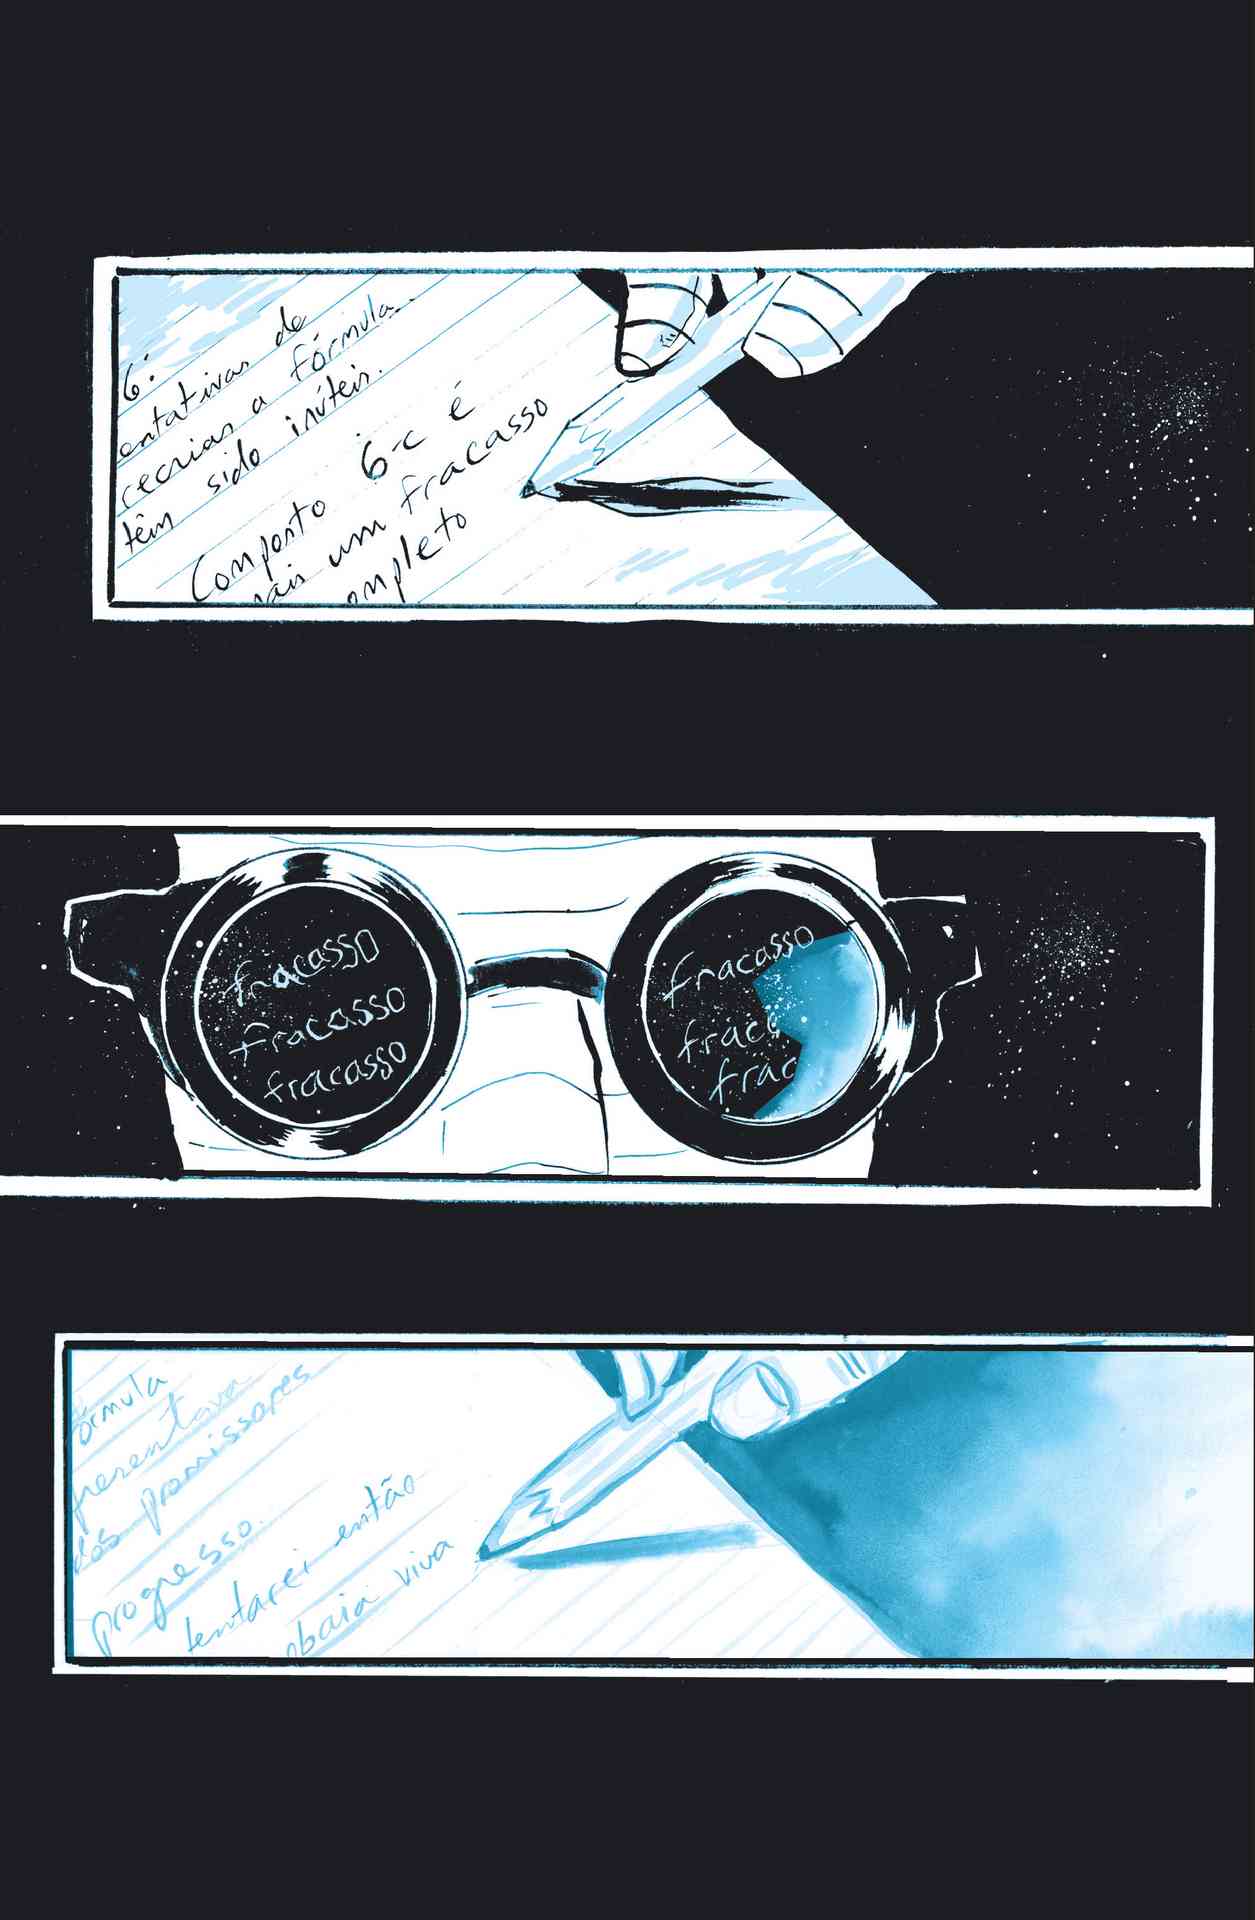 6:
entativas de
recriar a fórmula
têm sido inúteis.
Composto 6-c é
mais um fracasso
ompleto
fracasso
fracasso
fracasso
fracasso
frac
frac
órmula
presentava
dos promissores
progresso.
tentarei então
obaia viva